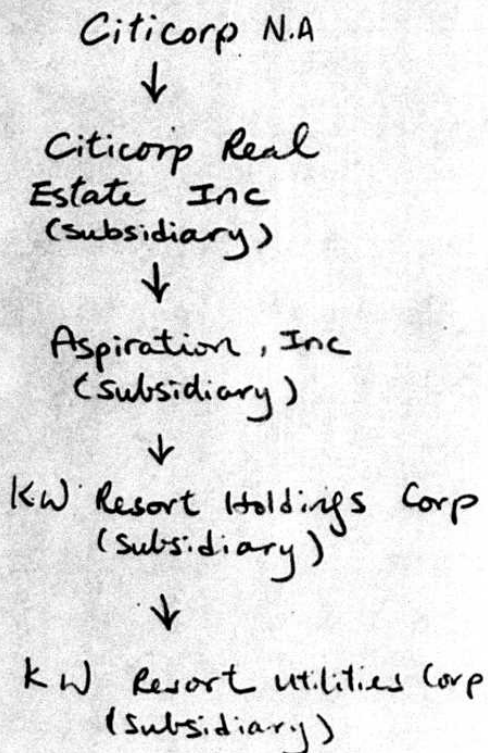 Citicorp N.A
↓
Citicorp Real
Estate Inc
(subsidiary)
↓
Aspiration, Inc
(subsidiary)
↓
KW Resort Holdings Corp
(subsidiary)
↓
KW Resort Utilities Corp
(subsidiary)